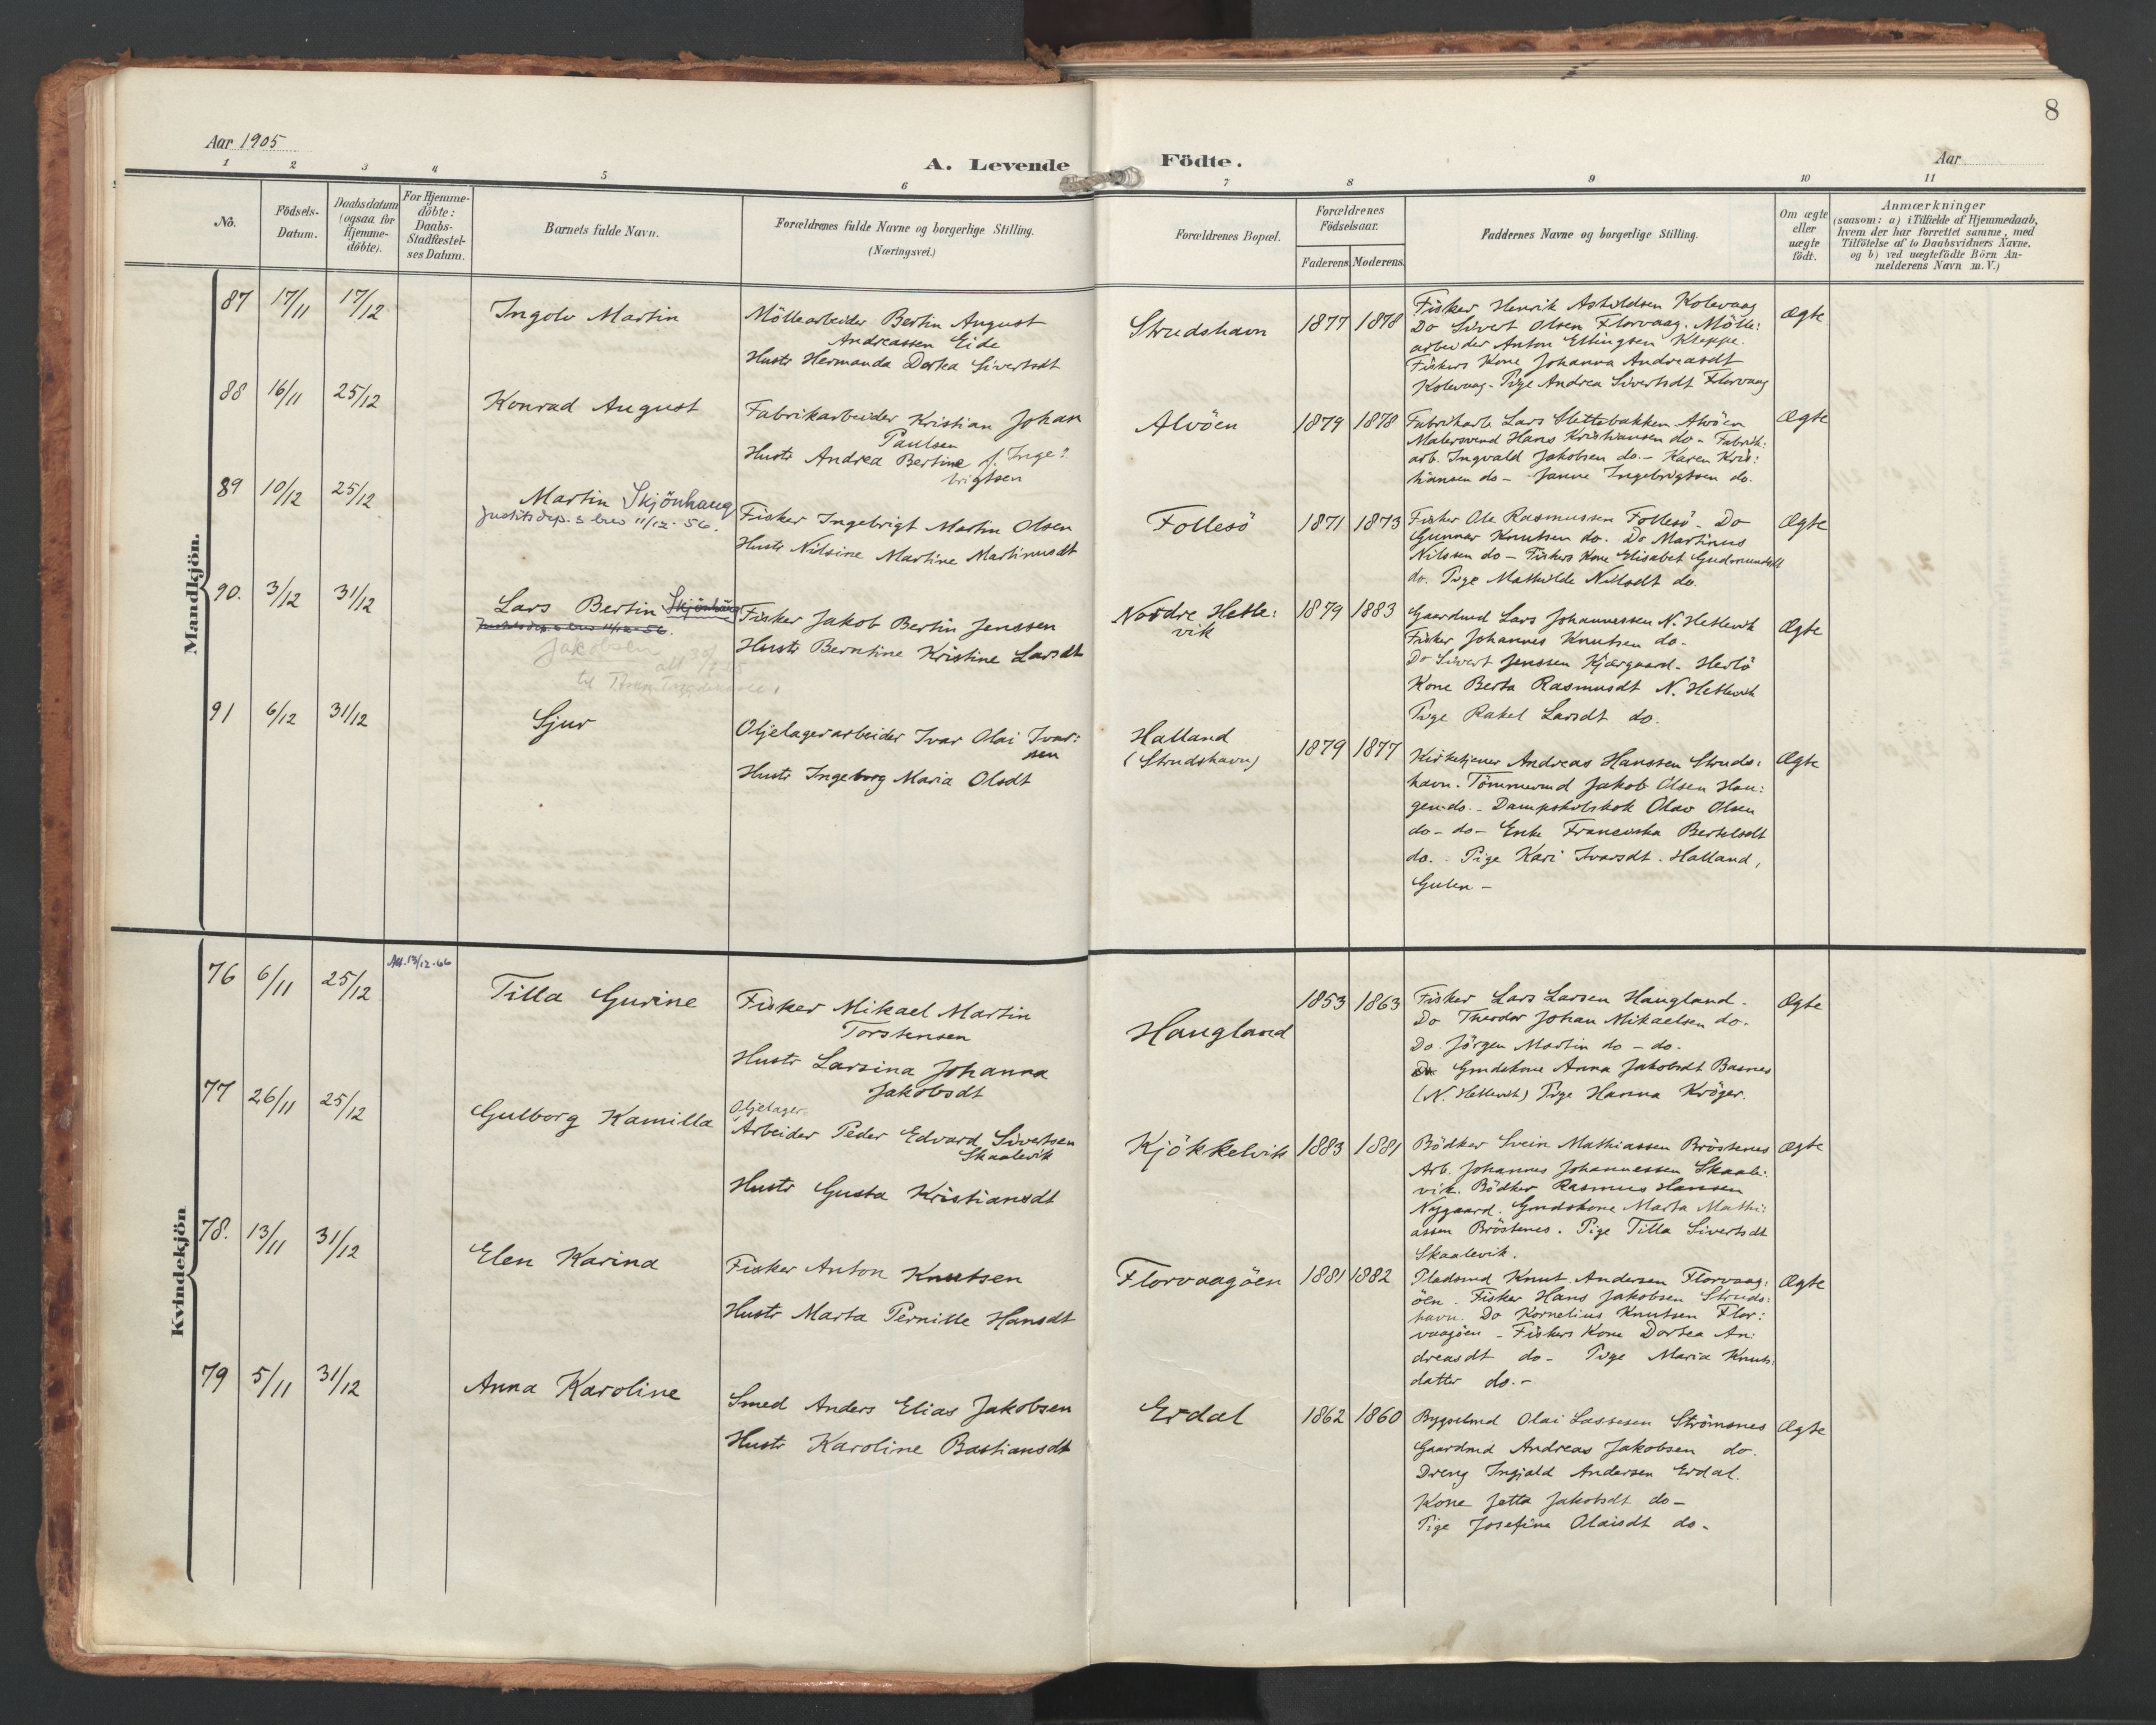 8
Aar 1905
A. Levende Födte.
Aar
1 2 3 4 5 6 7 8 9 10 11
No.
Födsels-
Datum.
Daabsdatum
(ogsaa for
Hjemme-
döbte).
For Hjemme-
döbte:
Daabs-
Stadfæstel-
ses Datum.
Barnets fulde Navn.
Forældrenes fulde Navne og borgerlige Stilling.
(Næringsvei.)
Forældrenes Bopæl.
Forældrenes
Födselsaar.
Faderens Moderens
Faddernes Navne og borgerlige Stilling.
Om ægte
eller
uægte
födt.
Anmærkninger
(saasom: a) i Tilfælde af Hjemmedaab,
hvem der har forrettet samme, med
Tilföielse af to Daabsvidners Navne.
og b) ved uægtefödte Börn An-
melderens Navn m. V.)
Mandkjön.
87 17/11 17/12
Ingolv Martin
Möllearbeider Bertin August
Andreassen Eide
Hustr Hermanda Dortea Sivertsdt
Strudshavn
1877 1878
Fisker Henrik Askildsen Kolevaag
Do Sivert Olsen Florvaag. Mölle:
arbeider Anton Ellingsen Kleppe.
Fiskers Kone Johanna Andreasdt
Kolevaag - Pige Andrea Sivertsdt Florvaag
Ægte
88 16/11 25/12
Konrad August
Fabrikarbeider Kristian Johan
Paulsen
Hustr Andrea Bertine f. Inge:
brigtsen
Alvöen
1879 1878
Fabrikarb. Lars Slettebakken Alvöen
Malersvend Hans Kristiansen do - Fabrik:
arb. Ingvald Jakobsen do. - Karen Kris:
tiansen do - Janne Ingebrigtsen do.
Ægte
89 10/12 25/12
Martin Skjönhaug
Justitsdep.s brev 11/12-56.
Fisker Ingebrigt Martin Olsen
Hustr Nilsine Martine Martinusdt
Follesö
1871 1873
Fisker Ole Rasmussen Follesö - Do
Gunnar Knutsen do. Do Martinus
Nilssen do - Fiskers Kone Elisabet Gudmundsdt
do. Pige Mathilde Nilsdt do.
Ægte
90. 3/12 31/12
Lars Bertin Skjönhaug
Justitsdep.s brev 11/12-56.
Jakobsen
Fisker Jakob Bertin Jenssen
Hustr Berntine Kristine Larsdt
Nordre Hetle:
vik
1879 1883
Gaardmd Lars Johannessen N. Hetlevik
Fisker Johannes Knutsen do.
Do Sivert Jenssen Kjærgaard - Herlö
Kone Berta Rasmusdt N. Hetlevik
Pige Rakel Larsdt do.
Ægte
91 6/12 31/12
Sjur
Oljelagerarbeider Ivar Olai Ivar:
sen
Hustr Ingeborg Maria Olsdt
Halland
(Strudshavn)
1879 1877
Kirketjener Andreas Hanssen Struds:
havn. Tömmermd Jakob Olsen Hau:
gen do. - Dampskibskok Olav Olsen
do - do - Enke Franciska Bertelsdt
do. - Pige Kari Ivarsdt. Halland,
Gulen -
Ægte
Kvindekjön
76 6/11 25/12
Att. 13/12-66
Tilla Gurine
Fisker Mikael Martin
Torstensen
Hustr Larsina Johanna
Jakobsdt
Haugland
1853 1863
Fisker Lars Larsen Haugland -
Do Theodor Johan Mikaelsen do.
Do Jörgen Martin do - do.
Gmdskone Anna Jakobsdt Basnes
(N. Hetlevik) Pige Hanna Kröger.
Ægte
77 26/11 25/12
Gulborg Kamilla
Oljelager
Arbeider Peder Edvard Sivertsen
Skaalevik
Hustr Gusta Kristiansdt
Kjökkelvik
1883 1881
Bödker Svein Mathiassen Bröstenes
Arb. Johannes Johannessen Skaale:
vik. Bödker Rasmus Hansen
Nygaard. Gmdskone Marta Mathi:
assen Bröstenes. Pige Tilla Sivertsdt
Skaalevik.
Ægte
78. 13/11 31/12
Elen Karina
Fisker Anton Knutsen
Hustr Marta Pernille Hansdt
Florvaagöen
1881 1882
Pladsmd Knut Andersen Florvaag:
öen. Fisker Hans Jakobsen Struds:
havn. Do Kornelius Knutsen Flor:
vaagöen - Fiskers Kone Dortea An:
dreasdt do - Pige Maria Knuts:
datter do. -
Ægte
79 5/11 31/12
Anna Karoline
Smed Anders Elias Jakobsen
Hustr Karoline Bastiansdt
Erdal
1862 1860
Bygselmd Olai Lassesen Strömsnes
Gaardmd Andreas Jakobsen do.
Dreng Ingjald Andersen Erdal.
Kone Jetta Jakobsdt do -
Pige Josefine Olaisdt do -
Ægte